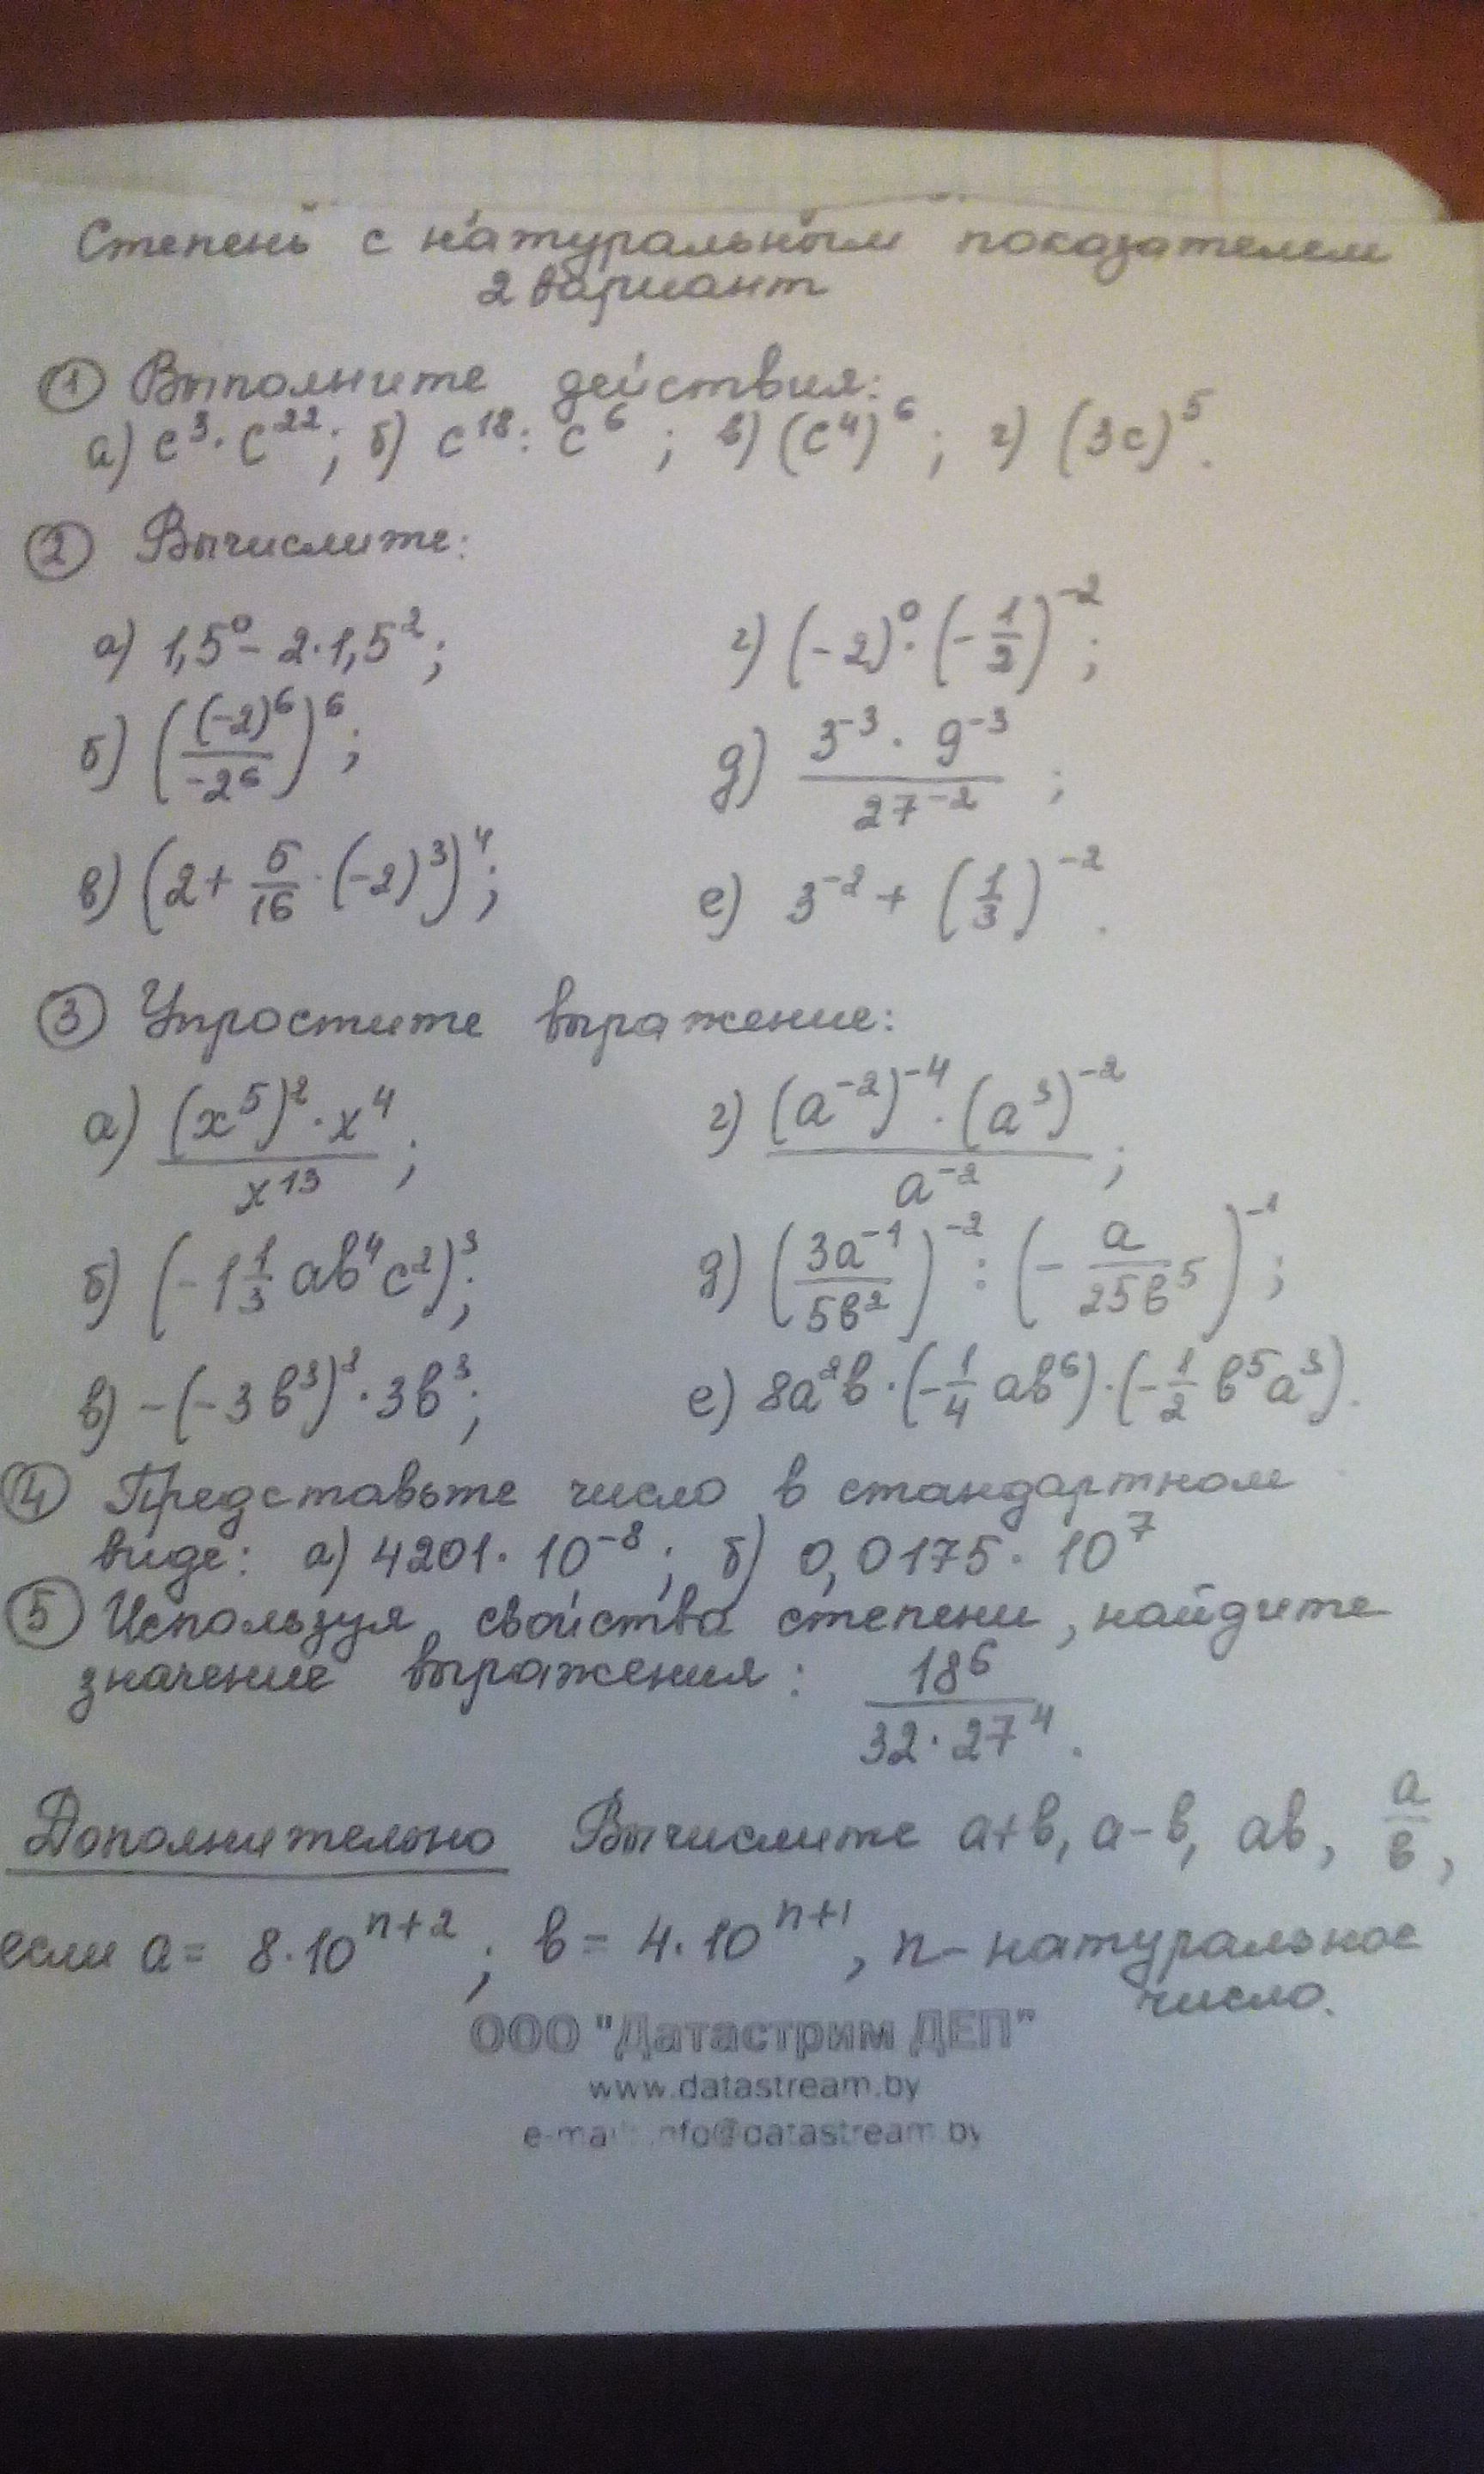 Степень с натуральным показателем
2 вариант
① Выполните действия:
а) c³ · c²²; б) c¹⁸ : c⁶; в) (c⁴)⁶; г) (3c)⁵.
② Вычислите:
а) 1,5⁰ - 2·1,5²; г) (-2)⁰ · (-1/2)⁻²;
б) ((-2)⁶/-2⁶)⁶; д) 3⁻³ · 9⁻³/27⁻²;
в) (2 + 5/16 · (-2)³)⁴; е) 3⁻² + (1/3)⁻².
③ Упростите выражение:
а) (x⁵)² · x⁴/x¹³; г) (a⁻²)⁻⁴ · (a³)⁻²/a⁻²;
б) (-1 1/3 ab⁴c²)³; д) (3a⁻¹/5b²)⁻² : (- a/25b⁵)⁻¹;
в) -(-3b³)² · 3b³; е) 8a²b · (-1/4 ab⁶) · (-1/2 b⁵a³).
④ Представьте число в стандартном
виде: а) 4201 · 10⁻⁸; б) 0,0175 · 10⁷
⑤ Используя свойства степени, найдите
значение выражения: 18⁶/32 · 27⁴.
Дополнительно Вычислите a+b, a-b, ab, a/b,
если a = 8·10ⁿ⁺²; b = 4·10ⁿ⁺¹, n - натуральное
число.
ООО "Датастрим ДЕП"
www.datastream.by
e-mail: info@datastream.by